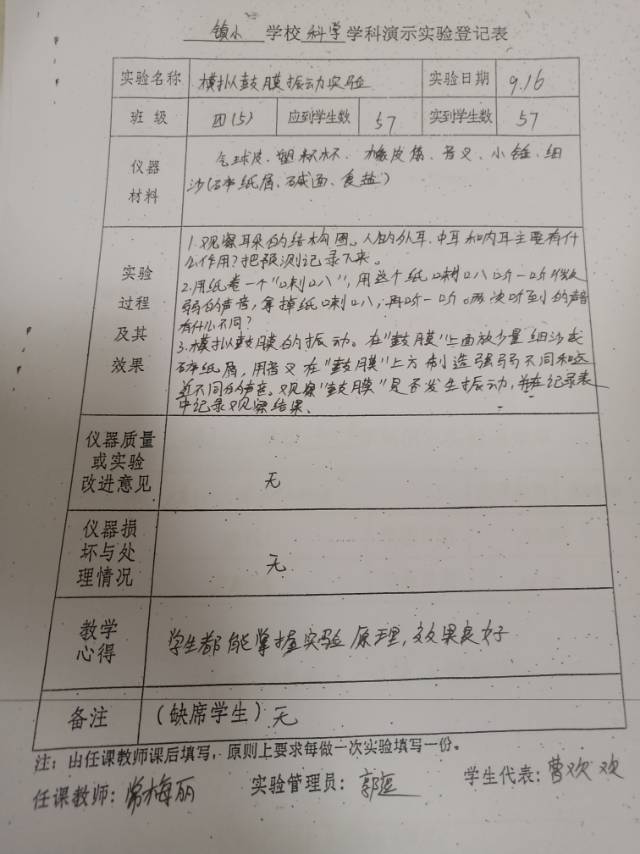 镇小 学校 科学 学科演示实验登记表
实验名称 模拟鼓膜振动实验 实验日期 9.16
班 级 四(5) 应到学生数 57 实到学生数 57
仪器材料 气球皮、塑料杯、橡皮筋、音叉、小锤、细
沙(碎纸屑、碱面、食盐)
实验过程及其效果
1.观察耳朵的结构图。人的外耳、中耳和内耳主要有什
么作用?把预测记录下来。
2.用纸卷一个"喇叭",用这个纸喇叭听一听微
弱的声音,拿掉纸喇叭,再听一听。两次听到的声音
有什么不同?
3.模拟鼓膜的振动。在"鼓膜"上面放少量细沙或
碎纸屑,用音叉在"鼓膜"上方制造强弱不同和远
近不同的声音。观察"鼓膜"是否发生振动,并在记录表
中记录观察结果、
仪器质量或实验改进意见 无
仪器损坏与处理情况 无
教学心得 学生都能掌握实验原理,效果良好
备注 (缺席学生) 无
注:由任课教师课后填写,原则上要求每做一次实验填写一份。
任课教师:常梅丽 实验管理员:郭 学生代表:曹欢欢